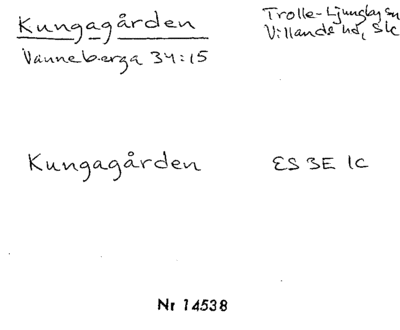 Kungagården
Vanneberga 34:15
Trolle-Ljungby sn
Villands hd, Skc
Kungagården
ES 3E 1c
Nr 14538